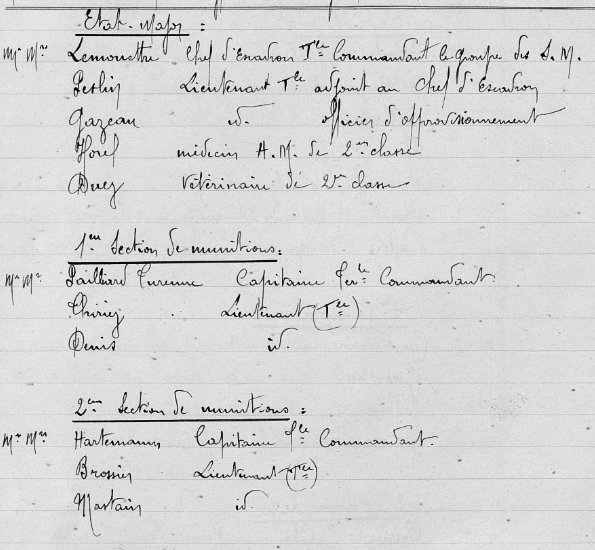 Etat-Major :
Mr Mrs Lemonettre Chef d'Escadron Tle Commandant le groupe des S. M.
Lieutenant Tle adjoint au Chef d'Escadron
Gazeau id. officier d'approvisionnement
Horel médecin A. M. de 2me classe
Duez Vétérinaire de 2me classe
1ère Section de munitions :
Mr Mrs Pailliard Turenne Capitaine Terle Commandant.
Thiriez Lieutenant (Tle)
Denis id.
2ème Section de munitions :
Mr Mrs Hartemann Capitaine Tle Commandant.
Brossier Lieutenant (Tle)
Mastain id.